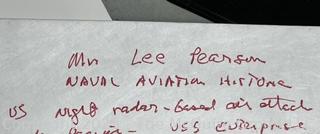 Mr Lee Pearson
NAVAL AVIATION HISTORIAN
US night radar-based air attack
USS Enterprise